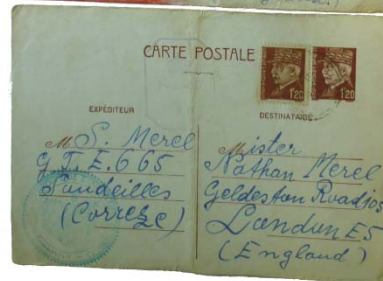 CARTE POSTALE
1.20
1.20
EXPÉDITEUR
M S. Merel
G.T.E. 665
Soudeilles
(Corrèze)
DESTINATAIRE
Mister
Nathan Merel
Geldeston Road 105
London E5
(England)